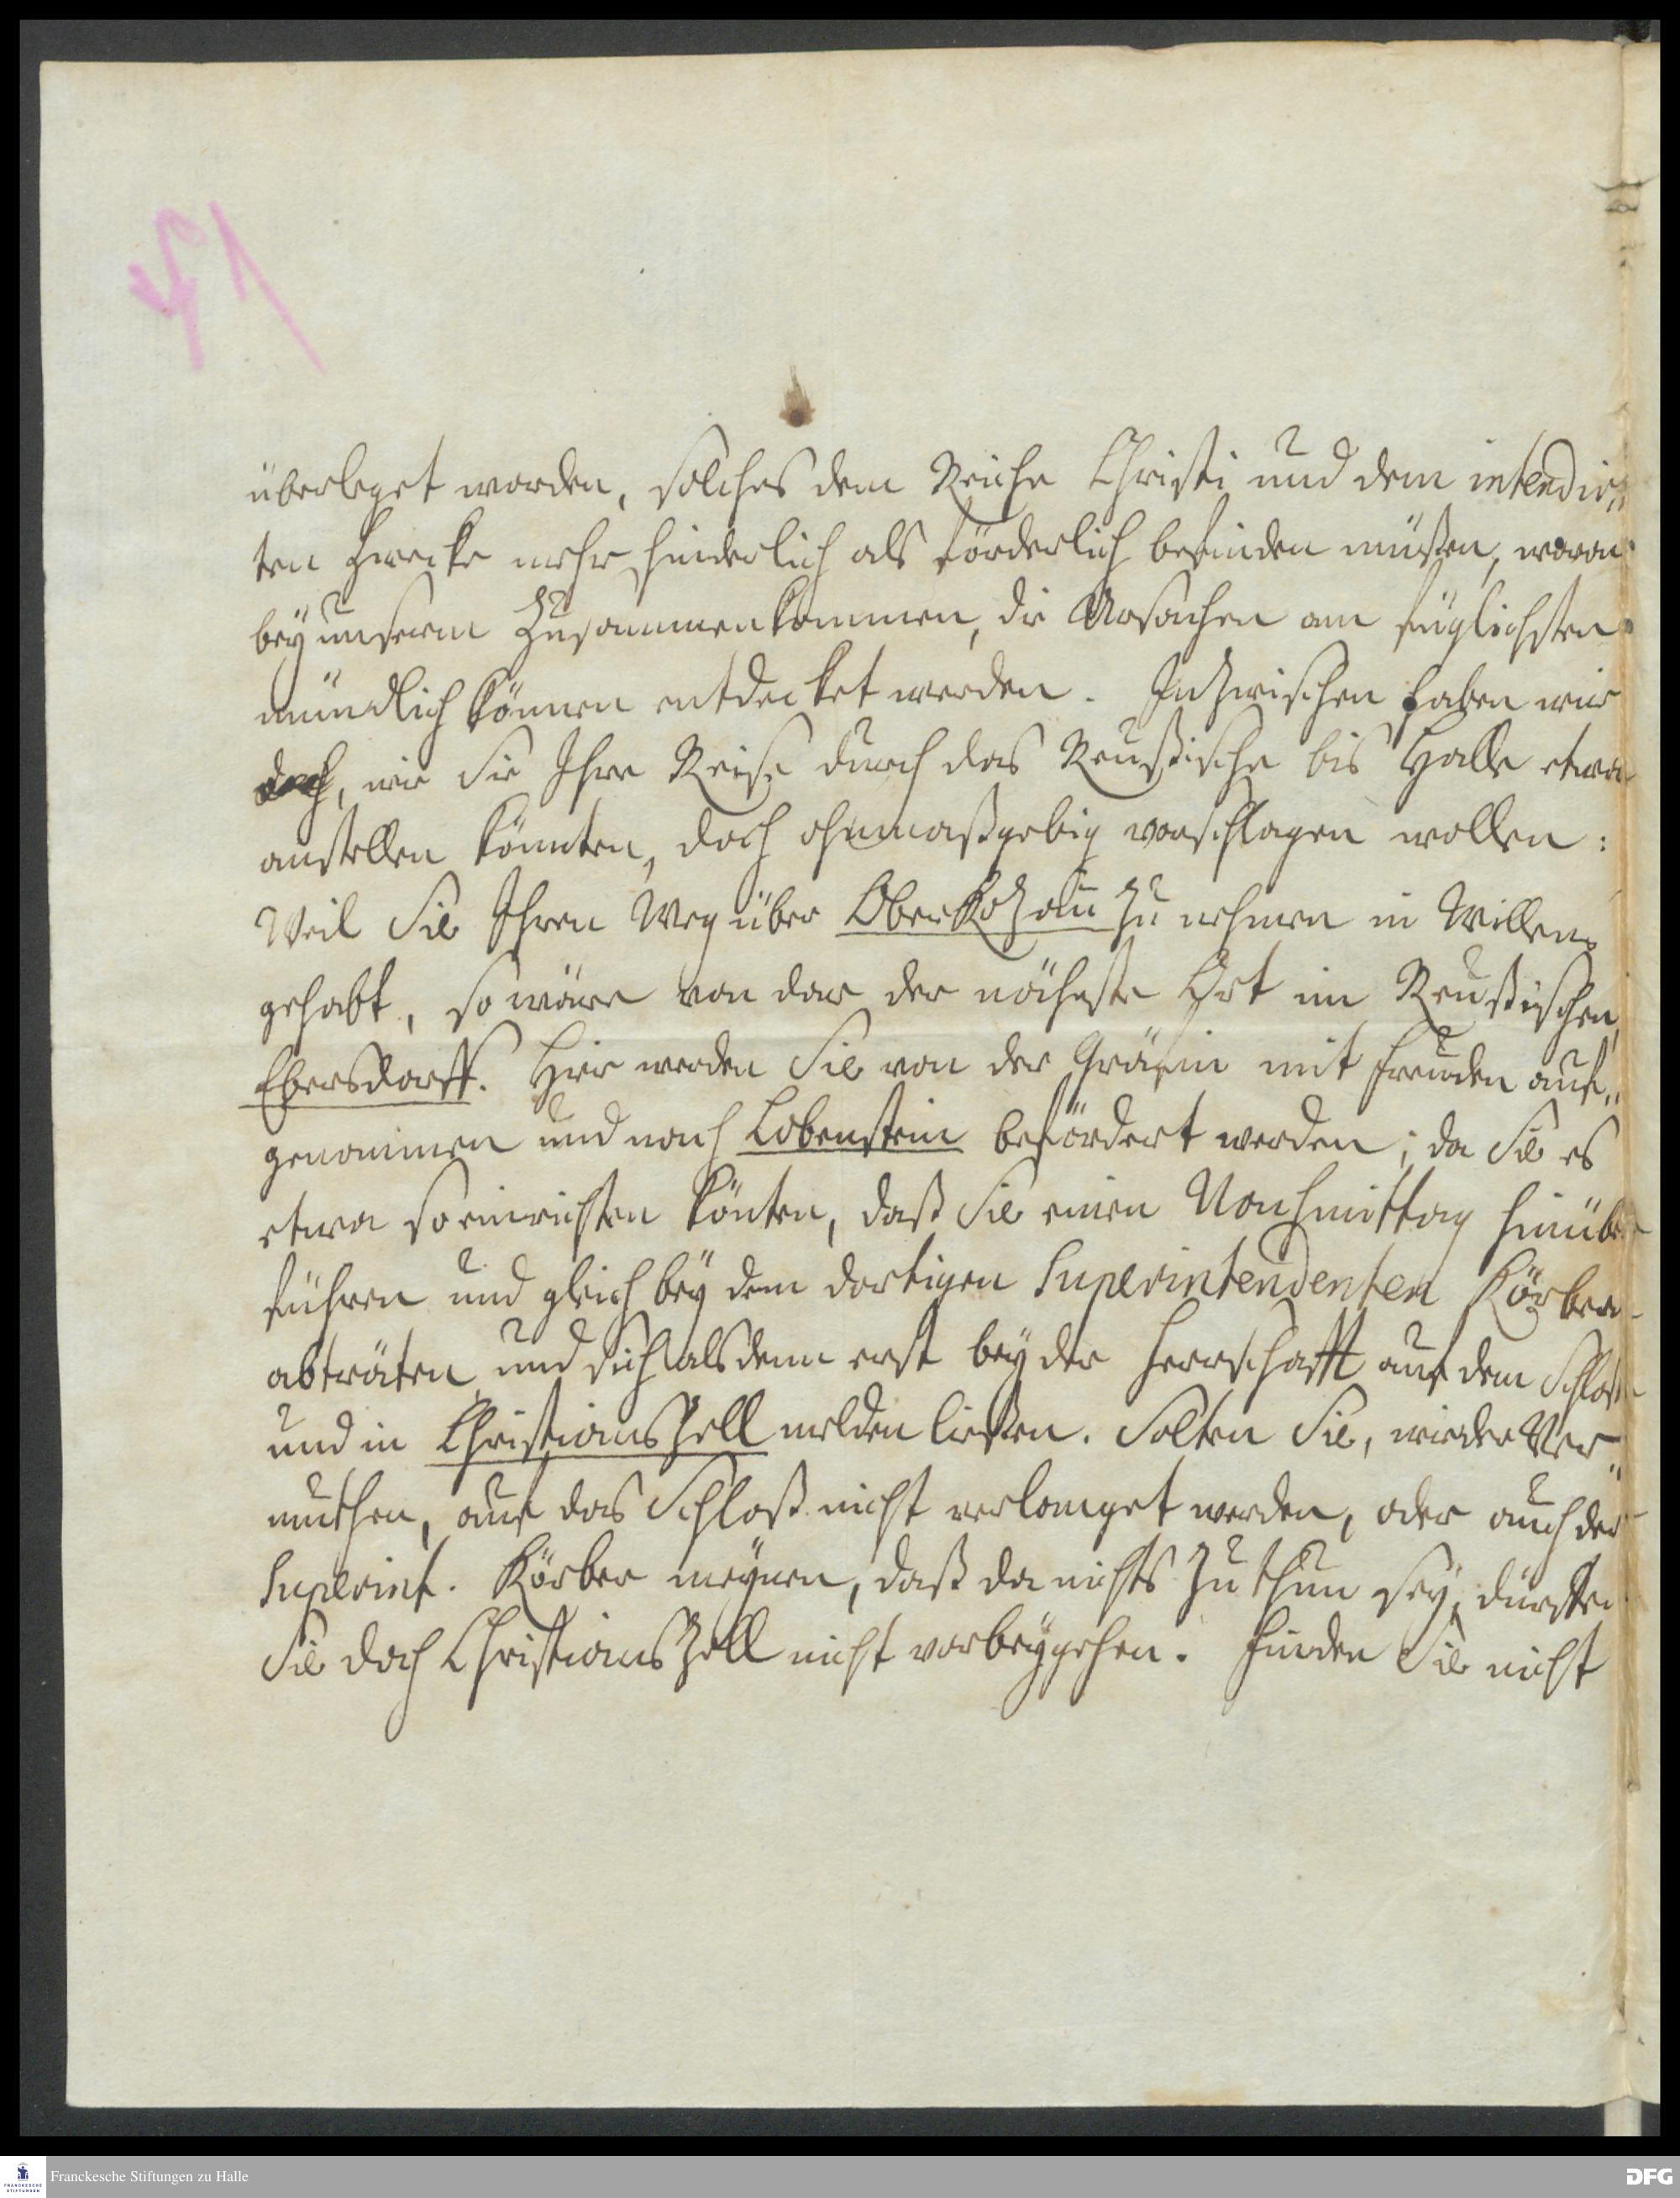 41
überleget worden, solches dem Reiche Christi und dem intendir„
ten Zwecke mehr hinderlich als förderlich befinden müßen, wovon
bey unserm Zusammenkommen, die Ursachen am füglichsten
mündlich können entdecket werden. Inzwischen haben wir
doch, wie Sie Ihre Reise durch das Reußische bis Halle etwa
anstellen könnten, doch ohnmaßgebig vorschlagen wollen:
Weil Sie Ihren Weg über Oberkozau zu nehmen in Willens
gehabt, so wäre von dar der nächste Ort im Reußischen,
Ebersdorff. Hier werden Sie von der Gräfin mit Freuden auf„
genommen und nach Lobenstein befördert werden; da Sie es
etwa so einrichten könten, daß Sie einen Nachmittag hinüber
führen und gleich bey dem dortigen Superintendenten Körber
abträten, und sich alsdenn erst bey der Herrschafft auf dem Schloß
und in Christianszell melden ließen. Solten Sie, wieder Ver„
muthen, auf das Schloß nicht verlanget werden, oder auch der
Superint. Körber meynen, daß da nichts zu thun sey, dürften
Sie doch Christianszell nicht vorbeygehen. Finden Sie nicht
Franckesche Stiftungen zu Halle
DFG